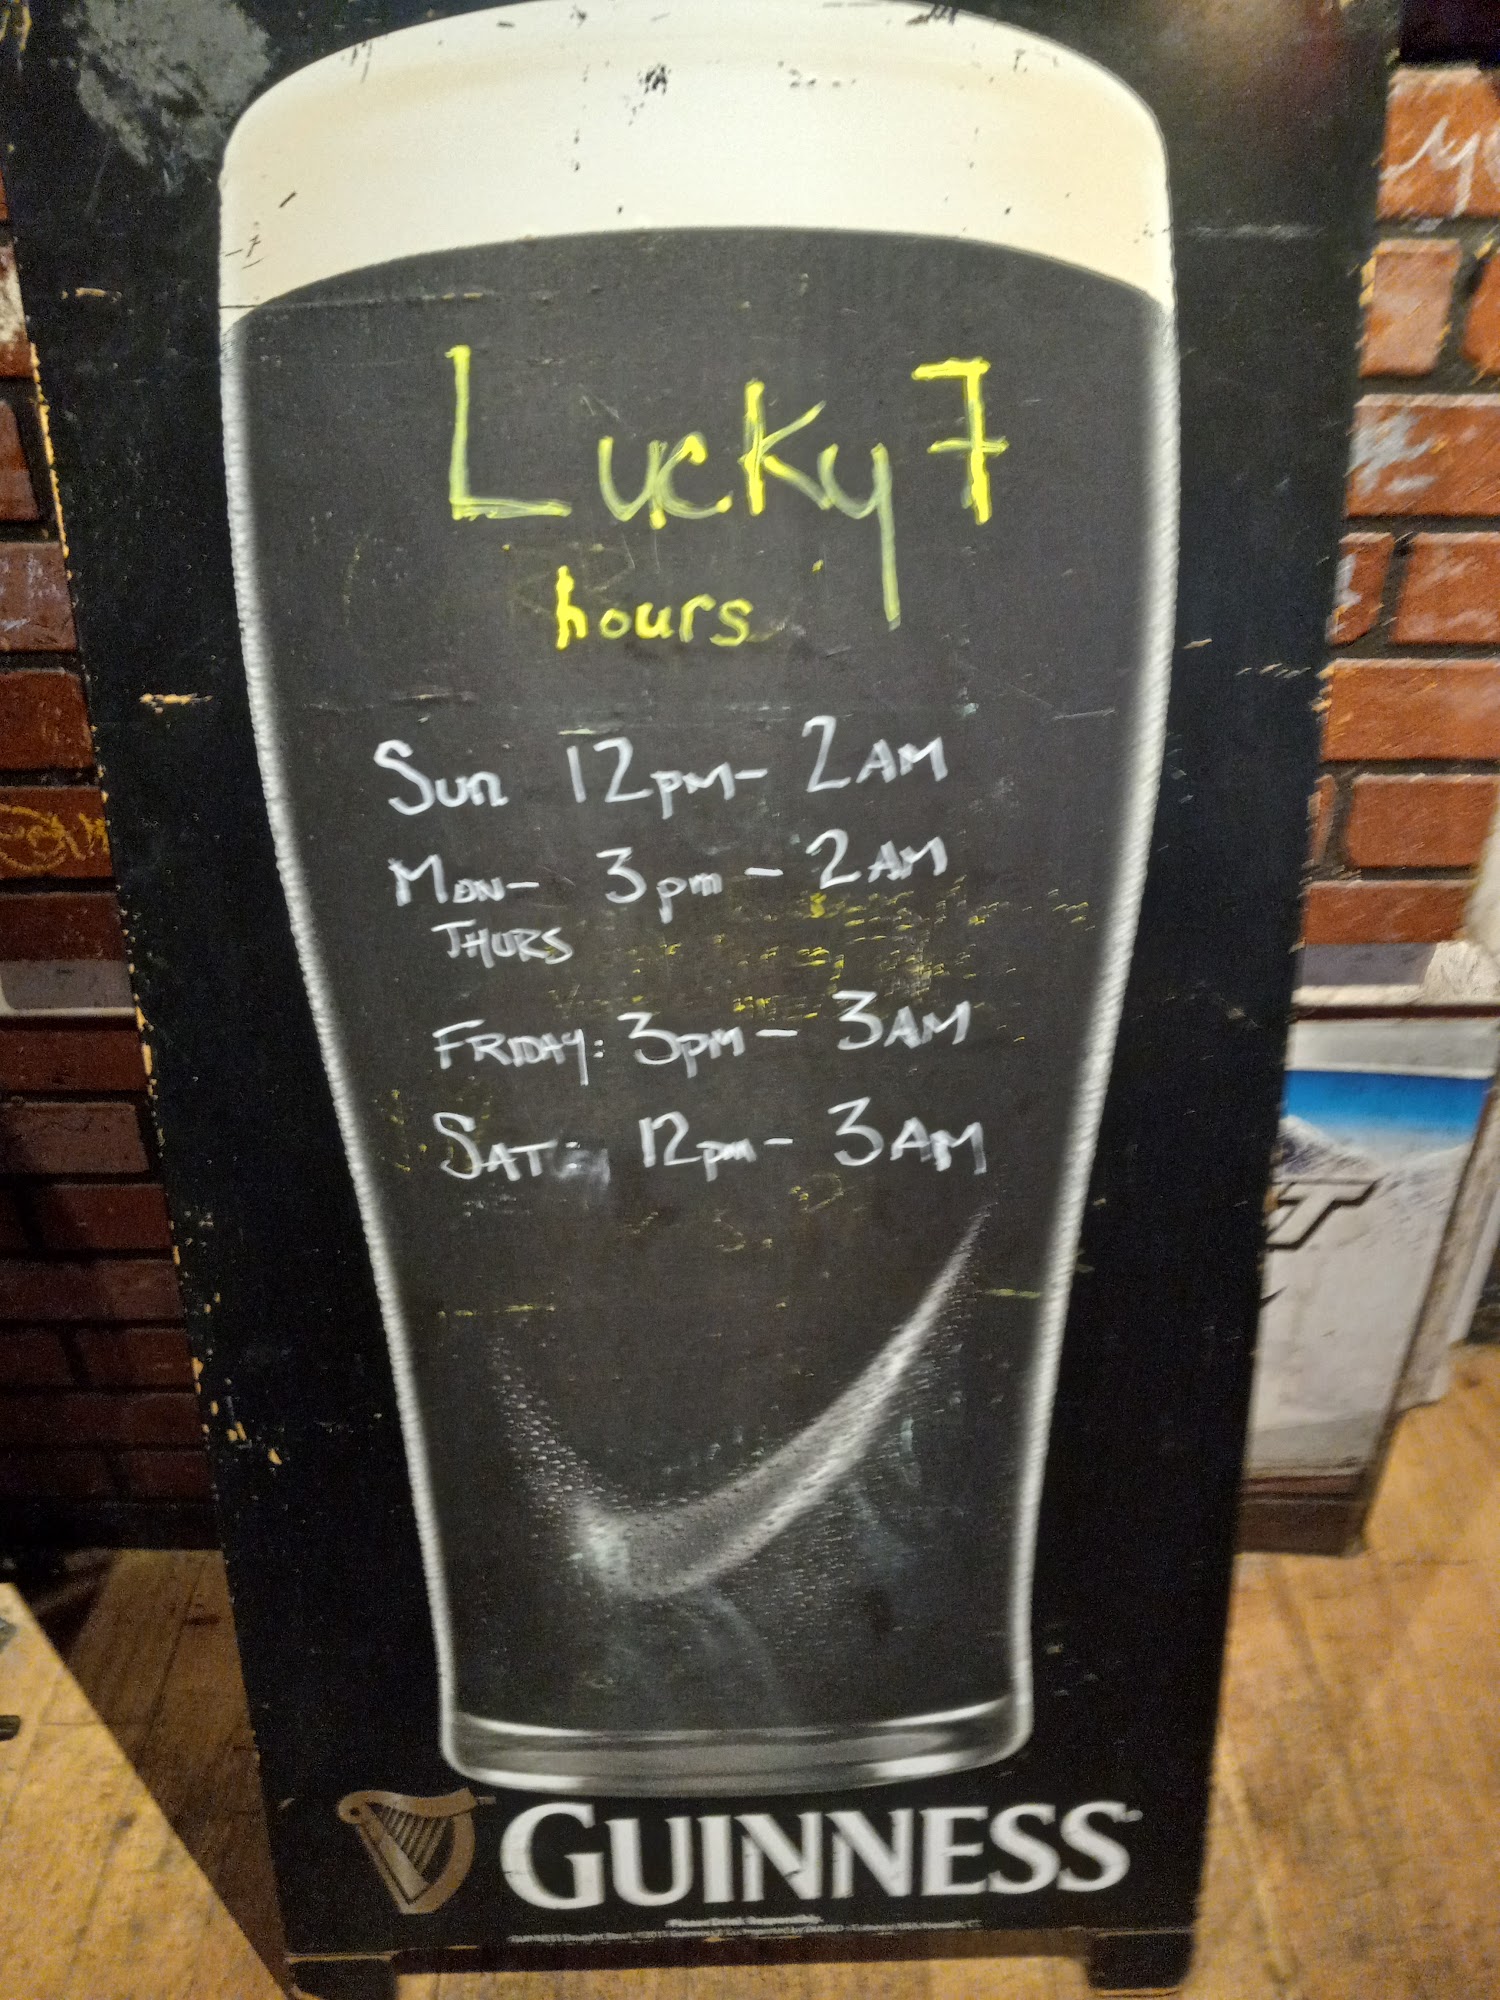 Lucky 7
hours
Sun 12pm- 2AM
Mon- 3pm - 2AM
THURS
FRIDAY: 3pm - 3AM
SAT: 12pm - 3AM
GUINNESS